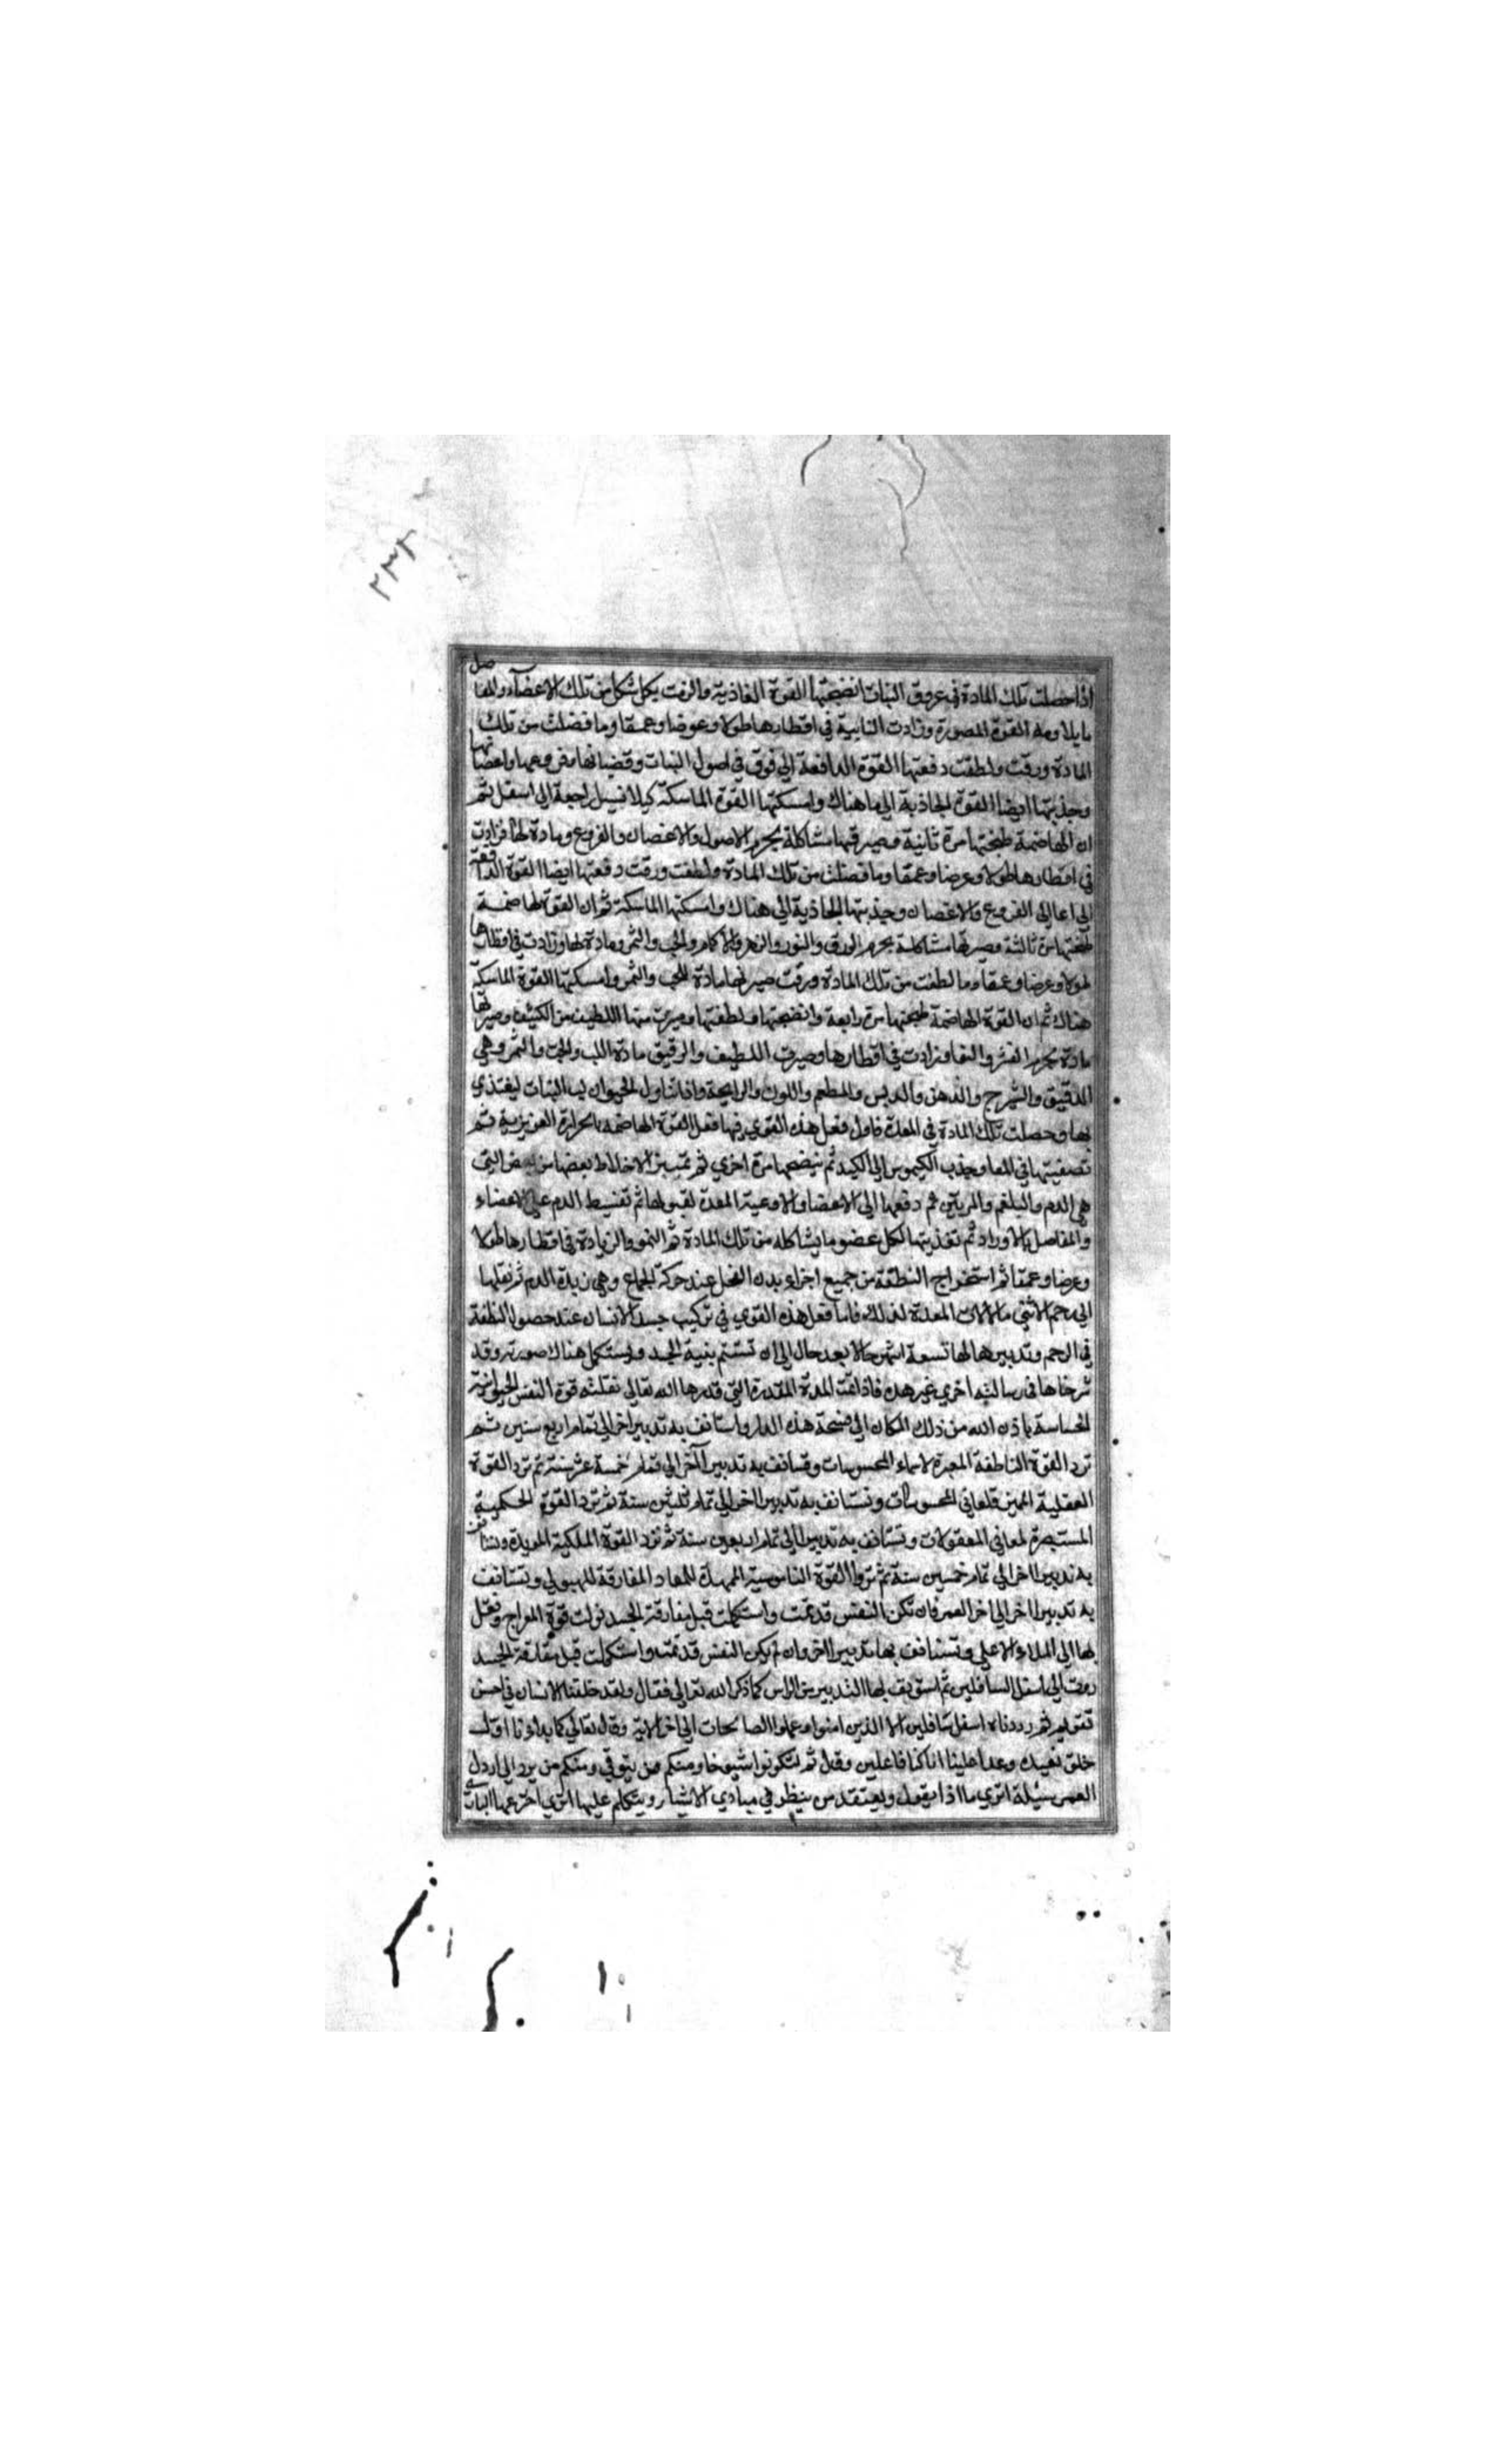 ٢٣٤
اذا حصلت تلك المادة في عروق النبات انضجتها القوة الغاذية والزقت بكل شكل من تلك الاعضاء والمفاصل
ما يلاومه القوة المصورة وزادت النامية في اقطارها طولا وعرضا وعمقا وما فضلت من تلك
المادة ورقت ولطفت دفعتها القوة الدافعة الي فوق في اصول النبات وقضبانها وفروعها واغصانها
وجذبتها ايضا القوة الجاذبة الي ما هناك وامسكتها القوة الماسكة كيلا تسيل راجعة الي اسفل ثم
ان الهاضمة طبختها مرة ثانية وصيرتها مشاكلة بجرم الاصول والاغصان والفروع ومادة لها فزادت
في اقطارها طولا وعرضا وعمقا وما فضلت من تلك المادة ولطفت ورقت دفعتها ايضا القوة الدافعة
الي اعالي الفروع والاغصان وجذبتها الجاذبة الي هناك وامسكتها الماسكة ثم ان القوة الهاضمة
طبختها مرة ثالثة وصيرتها مشاكلة بجرم الورق والنور والزهر والاكمام والحب والثمر ومادة لها وزادت في اقطارها
طولا وعرضا وعمقا وما لطفت من تلك المادة ورقت صيرتها مادة للحب والثمر وامسكتها القوة الماسكة
هناك ثم ان القوة الهاضمة طبختها مرة رابعة وانضجتها ولطفتها وميزت منها اللطيف من الكثيف وصيرتها
مادة بجرم القشر والنوا وزادت في اقطارها وصيرت اللطيف والرقيق مادة اللب والحب والثمر وهي
الدقيق والشيرج والدهن والدبس والطعم واللون والرايحة واذا تناول الحيوان لب النبات ليغتذي
بها وحصلت تلك المادة في المعدة فاول فعل هذه القوي فيها فعل القوة الهاضمة بالحرارة الغريزية ثم
تصفيتها في المعا وجذب الكيموس الي الكبد ثم ينضجها مرة اخري ثم تمييز الاخلاط بعضها من بعض التي
هي الدم والبلغم والمرتين ثم دفعها الي الاعضا والاوعية المعدة لقبولها ثم تقسيط الدم علي الاعضاء
والمفاصل بالاوراد ثم تغذيتها لكل عضو ما يشاكله من تلك المادة ثم النمو والزيادة في اقطارها طولا
وعرضا وعمقا ثم استخراج النطفة من جميع اجزاء بدن الفحل عند حركة الجماع وهي زبدة الدم ثم نقلها
الي رحم الانثي بالالات المعدة لذلك فاما فعل هذه القوي في تركيب جسد الانسان عند حصول النطفة
في الرحم وتدبيرها لها تسعة اشهر حالا بعد حال الي ان تستتم بنية الجسد وتستكمل هناك صورته وقد
شرحناها في رسالة اخري غير هذه فاذا تمت المدة المقدرة التي قدرها الله تعالي نقلته قوة النفس الحيوانية
الحساسة باذن الله من ذلك المكان الي فسحة هذه الدار واستانف به تدبيرا اخر الي تمام اربع سنين ثم
ترد القوة الناطقة المعبرة لاسماء المحسوسات وتستانف به تدبيرا آخر الي تمام خمسة عشر سنة ثم ترد القوة
العقلية المميزة لمعاني المحسوسات وتستانف به تدبيرا اخر الي تمام ثلثين سنة ثم ترد القوة الحكمية
المستبصرة لمعاني المعقولات وتستانف به تدبيرا الي تمام اربعين سنة ثم ترد القوة الملكية المويدة وتستانف
به تدبيرا اخر الي تمام خمسين سنة ثم تروا القوة الناموسية الممهدة للمعاد المفارقة للهيولي وتستانف
به تدبيرا اخر الي اخر العمر فان تكن النفس قد تمت واستكملت قبل مفارقة الجسد نزلت قوة المعراج وتعل
بها الي الملاء الاعلي وتستانف بها تدبيرا اخر وان لم يكن النفس قد تمت واستكملت قبل مفارقة الجسد
ردت الي اسفل السافلين ثم استونف بها التدبير من الراس كما ذكر الله تعالي فقال ولقد خلقنا الانسان في احسن
تقويم ثم رددناه اسفل سافلين الا الذين امنوا وعملوا الصالحات الي اخر الاية وقال تعالي كما بدانا اول
خلق نعيده وعدا علينا انا كنا فاعلين وقيل ثم لتكونوا شيوخا ومنكم من يتوفي ومنكم من يرد الي ارذل
العمر سئلة اتري ما اذا يقول ويعتقد من ينظر في مبادي الاشياء ويتكلم عليها اتري اخترعها الباري